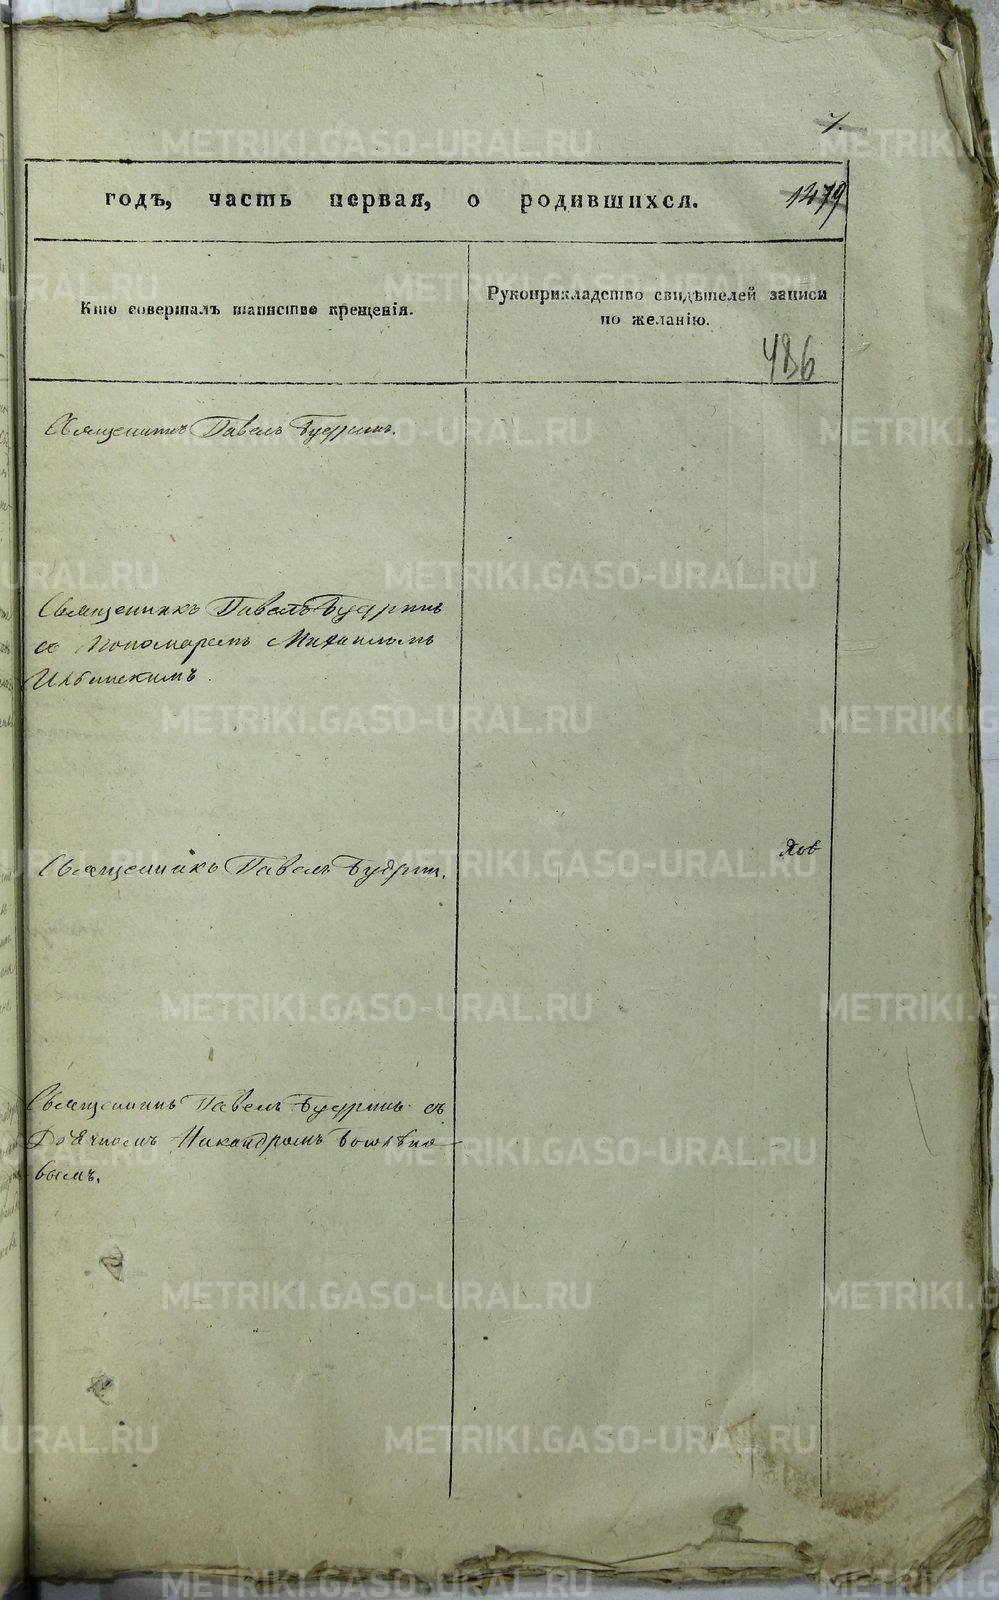 7.
годъ, часть первая, о родившихся.
1479
Кто совершалъ таинство крещенія.
Рукоприкладство свидѣтелей записи
по желанію.
486
Священникъ Павелъ Будринъ.
Священникъ Павелъ Будринъ
съ Пономаремъ Михаиломъ
Священникъ Павелъ Будрин.
Священникъ Павелъ Будринъ съ
Дьячкомъ Никандромъ
вымъ.
METRIKI.GASO-URAL.RU